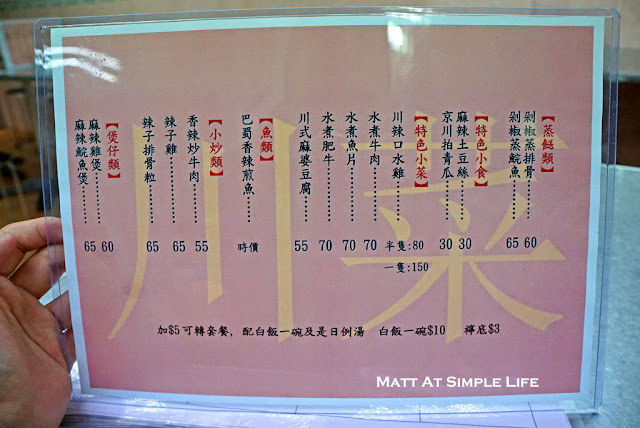 川菜
【蒸餸類】
剁椒蒸排骨……60
剁椒蒸鯇魚……65
【特色小食】
麻辣土豆絲……30
京川拍青瓜……30
【特色小菜】
川辣口水雞……半隻:80
一隻:150
水煮牛肉……70
水煮魚片……70
水煮肥牛……70
川式麻婆豆腐……55
【魚類】
巴蜀香辣煎魚……時價
【小炒類】
香辣炒牛肉……55
辣子雞……65
辣子排骨粒……65
【煲仔類】
麻辣雞煲……60
麻辣鯇魚煲……65
加$5可轉套餐，配白飯一碗及是日例湯 白飯一碗$10 檸底$3
MATT AT SIMPLE LIFE